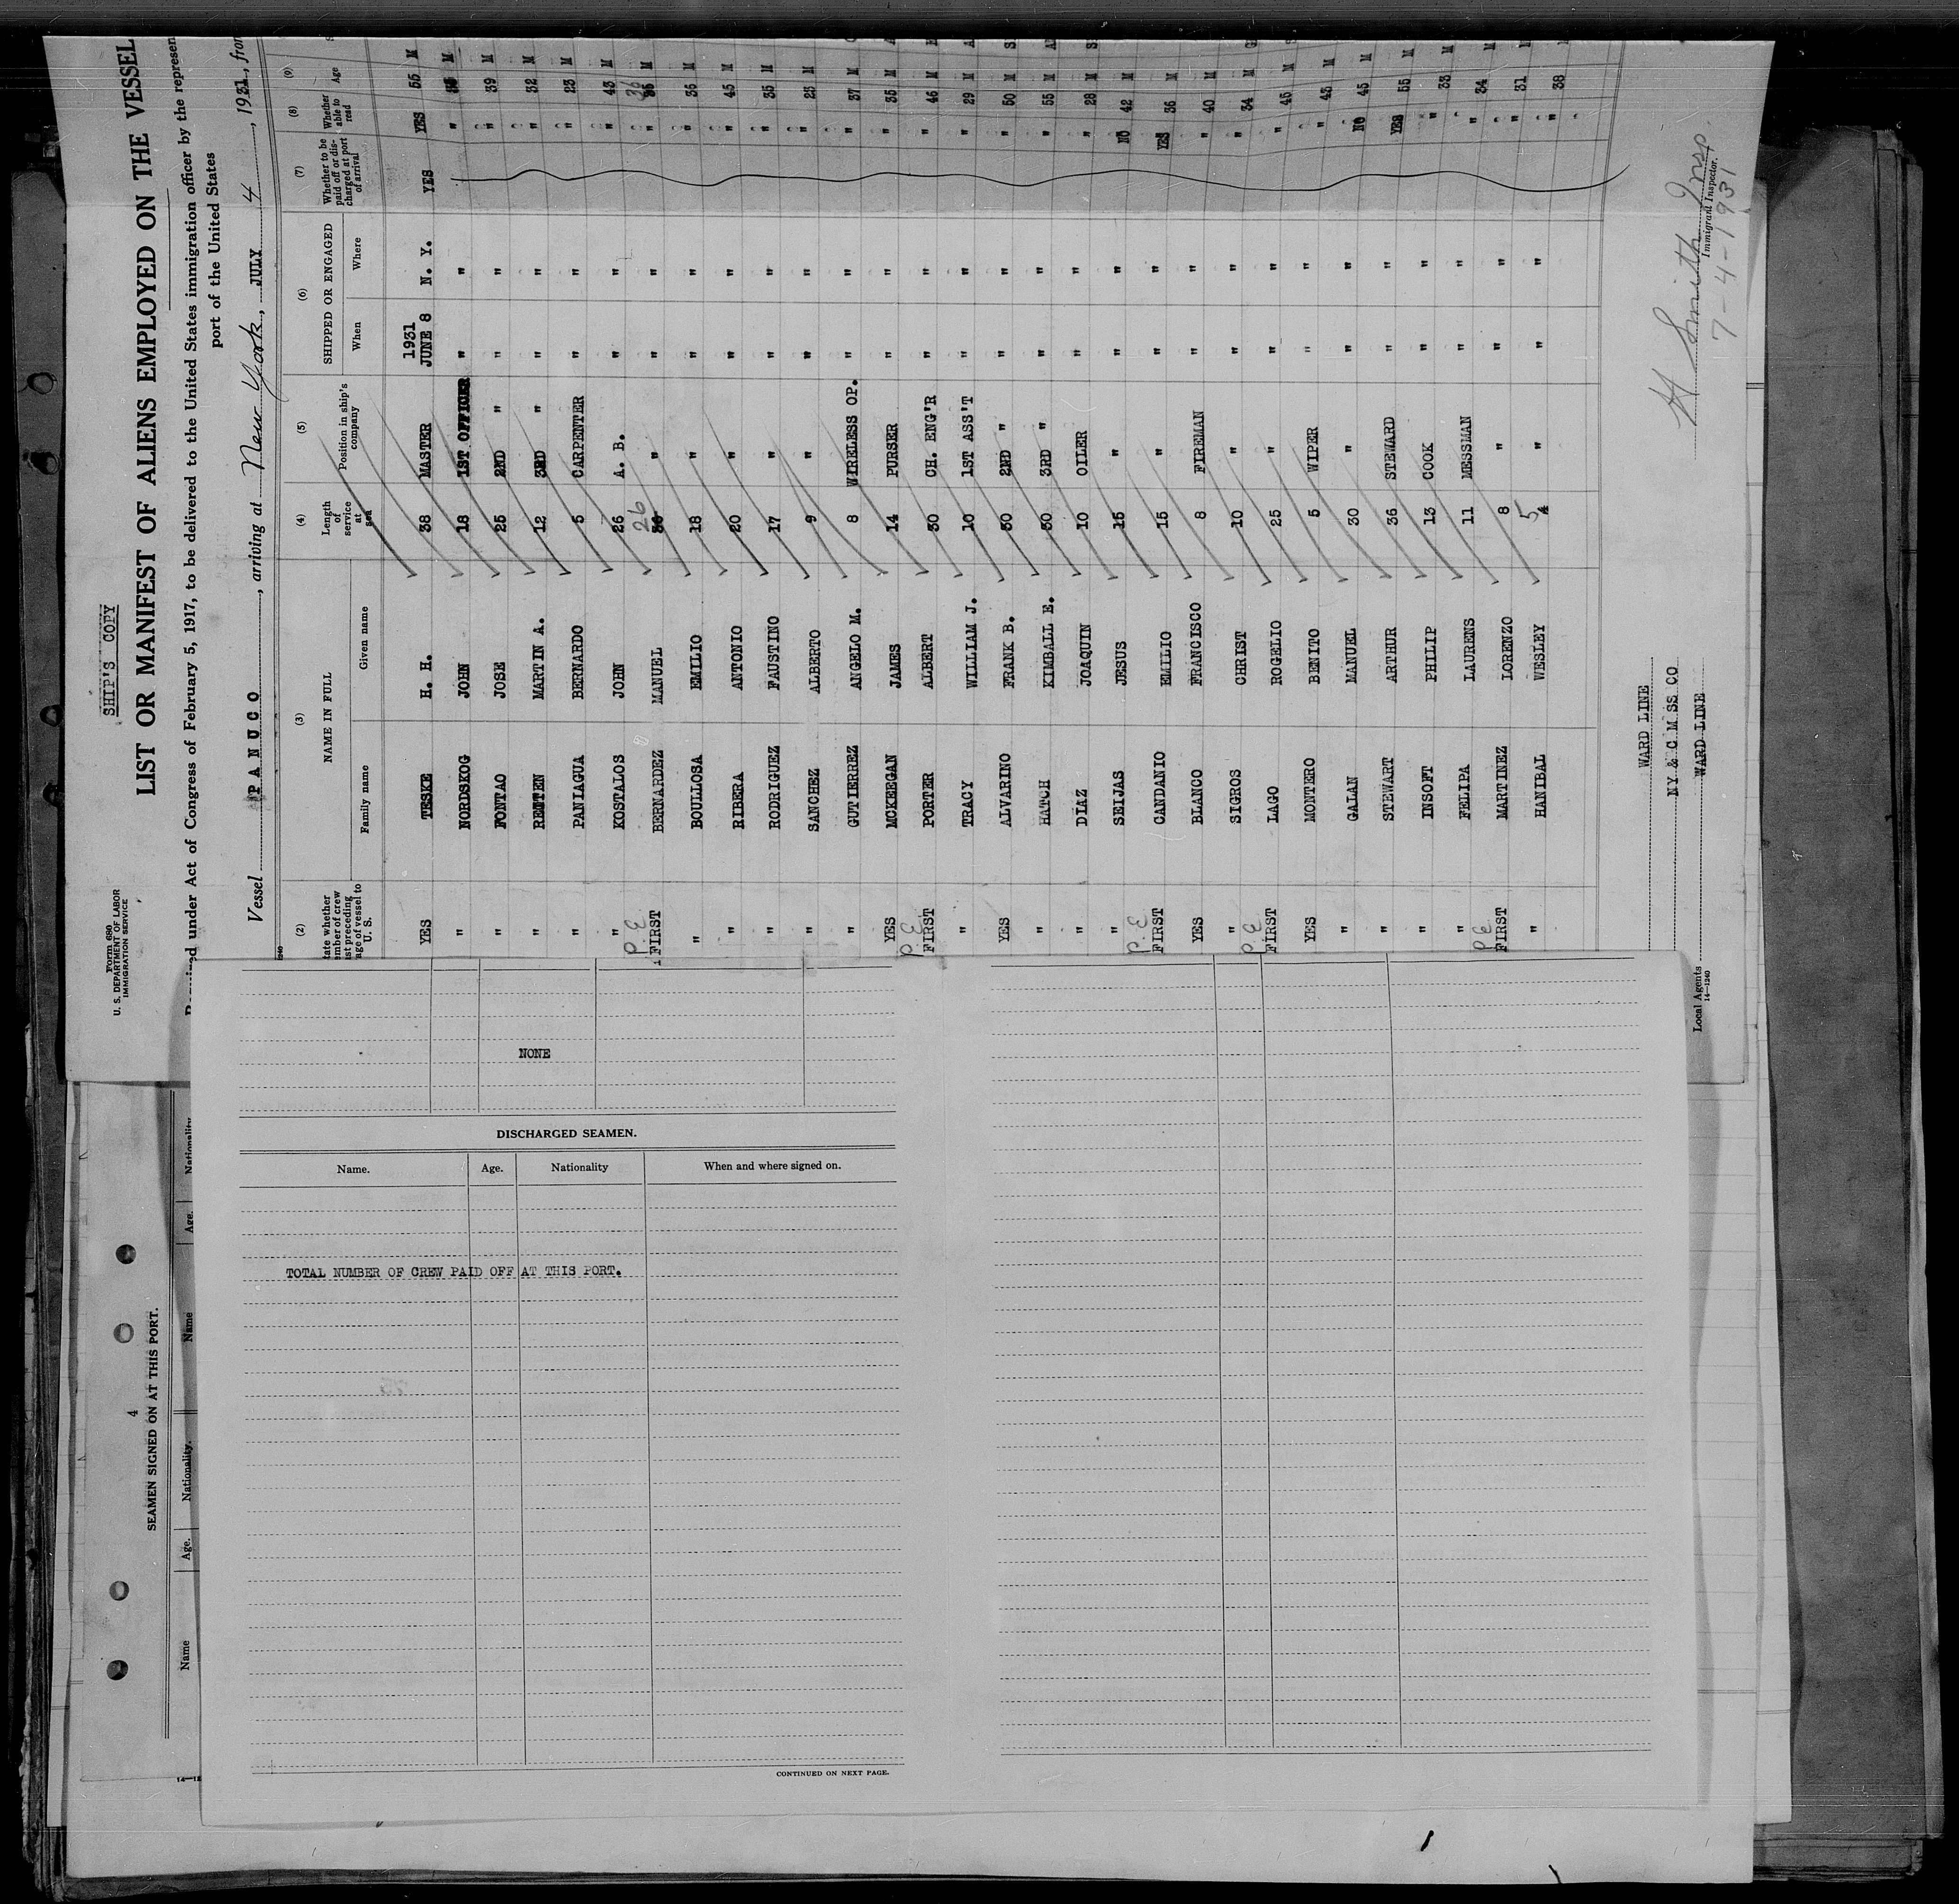 SHIP'S COPY
Form 680
U. S. DEPARTMENT OF LABOR
IMMIGRATION SERVICE
LIST OR MANIFEST OF ALIENS EMPLOYED ON THE VESSEL
under Act of Congress of February 5, 1917, to be delivered to the United States immigration officer by the represen
port of the United States
Vessel PANUCO, arriving at New York, JULY 4, 1931, from
(2) (3) (4) (5) (6) (7) (8) (9)
NAME IN FULL
SHIPPED OR ENGAGED
Family name Given name
Length of service at sea
Position in ship's company
When Where
Whether to be paid off or discharged at port of arrival
Whether able to read
Age
YES TESKE H. H. 38 MASTER 1931 JUNE 8 N. Y. YES YES 55 M
" NORDSKOG JOHN 18 1ST OFFICER " " " M
" FONTAO JOSE 25 2ND " " " " 39 M
" REMTEN MARTIN A. 12 3RD " " " " 32 M
" PANIAGUA BERNARDO 5 CARPENTER " " " 23 M
" KOSTALOS JOHN 26 A. B. " " " 43 M
P E FIRST BERNARDEZ MANUEL 26 " " " " 36 M
" BOULLOSA EMILIO 18 " " " " 36 M
" RIBERA ANTONIO 20 " " " " 45 M
" RODRIGUEZ FAUSTINO 17 " " " " 35 M
" SANCHEZ ALBERTO 9 " " " " 23 M
" GUTIERREZ ANGELO M. 8 WIRELESS OP. " " " 37 M
YES MCKEEGAN JAMES 14 PURSER " " " 35 M
P E FIRST PORTER ALBERT 30 CH. ENG'R " " " 46 M
" TRACY WILLIAM J. 10 1ST ASS'T " " " 29 M
YES ALVARINO FRANK B. 30 2ND " " " " 50 M
" HATCH KIMBALL E. 30 3RD " " " " 55 M
" DIAZ JOAQUIN 10 OILER " " " 28 M
" SEIJAS JESUS 15 " " " NO 42 M
P.E. FIRST CANDANIO EMILIO 15 " " " YES 36 M
YES BLANCO FRANCISCO 8 FIREMAN " " " 40 M
" SIGROS CHRIST 10 " " " " 34 M
P E FIRST LAGO ROGELIO 25 " " " " 45 M
YES MONTERO BENITO 5 WIPER " " " 43 M
" GALAN MANUEL 30 " " " NO 45 M
" STEWART ARTHUR 36 STEWARD " " YES 55 M
" INSOFT PHILIP 13 COOK " " " 33 M
" FELIPA LAURENS 11 MESSMAN " " " 34 M
P E FIRST MARTINEZ LORENZO 8 " " " " 31 M
" HANIBAL WESLEY 5 " " " " 38
WARD LINE
NY & C M SS CO
Local Agents WARD LINE
14—1240
H Smith Insp.
Immigrant Inspector.
7-4-1931
NONE
DISCHARGED SEAMEN.
Name. Age. Nationality When and where signed on.
TOTAL NUMBER OF CREW PAID OFF AT THIS PORT.
CONTINUED ON NEXT PAGE.
4
SEAMEN SIGNED ON AT THIS PORT.
Name Age. Nationality. Name Age. Nationality